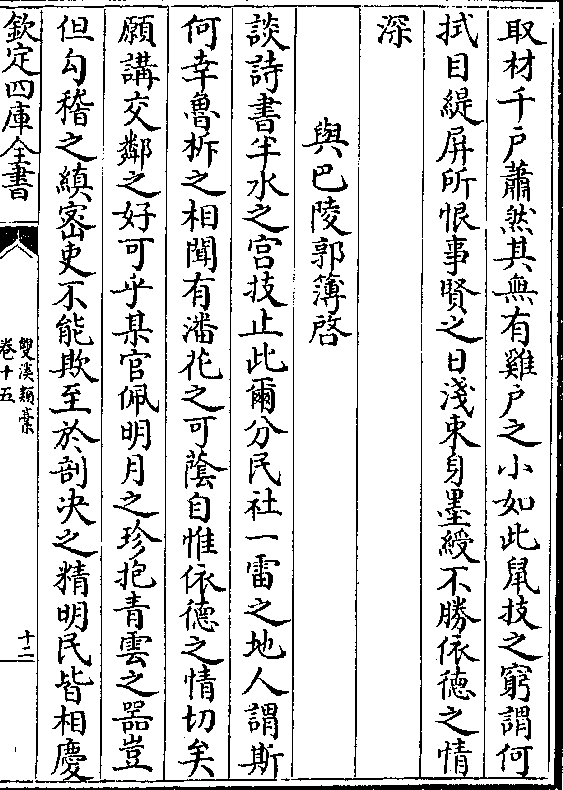 取材千戸蕭然其無有雞戸之小如此鼠技之窮謂何
拭目緹屏所恨事賢之日淺束身墨綬不勝依德之情
深
與巴陵郭簿啓
談詩書半水之宫技止此爾分民社一雷之地人謂斯
何幸魯柝之相聞有潘花之可蔭自惟依德之情切矣
願講交鄰之好可乎某官佩明月之珍抱青雲之器豈
但勾稽之縝宻吏不能欺至於剖决之精明民皆相慶
欽定四庫全書
雙溪類稾
卷十五
十二